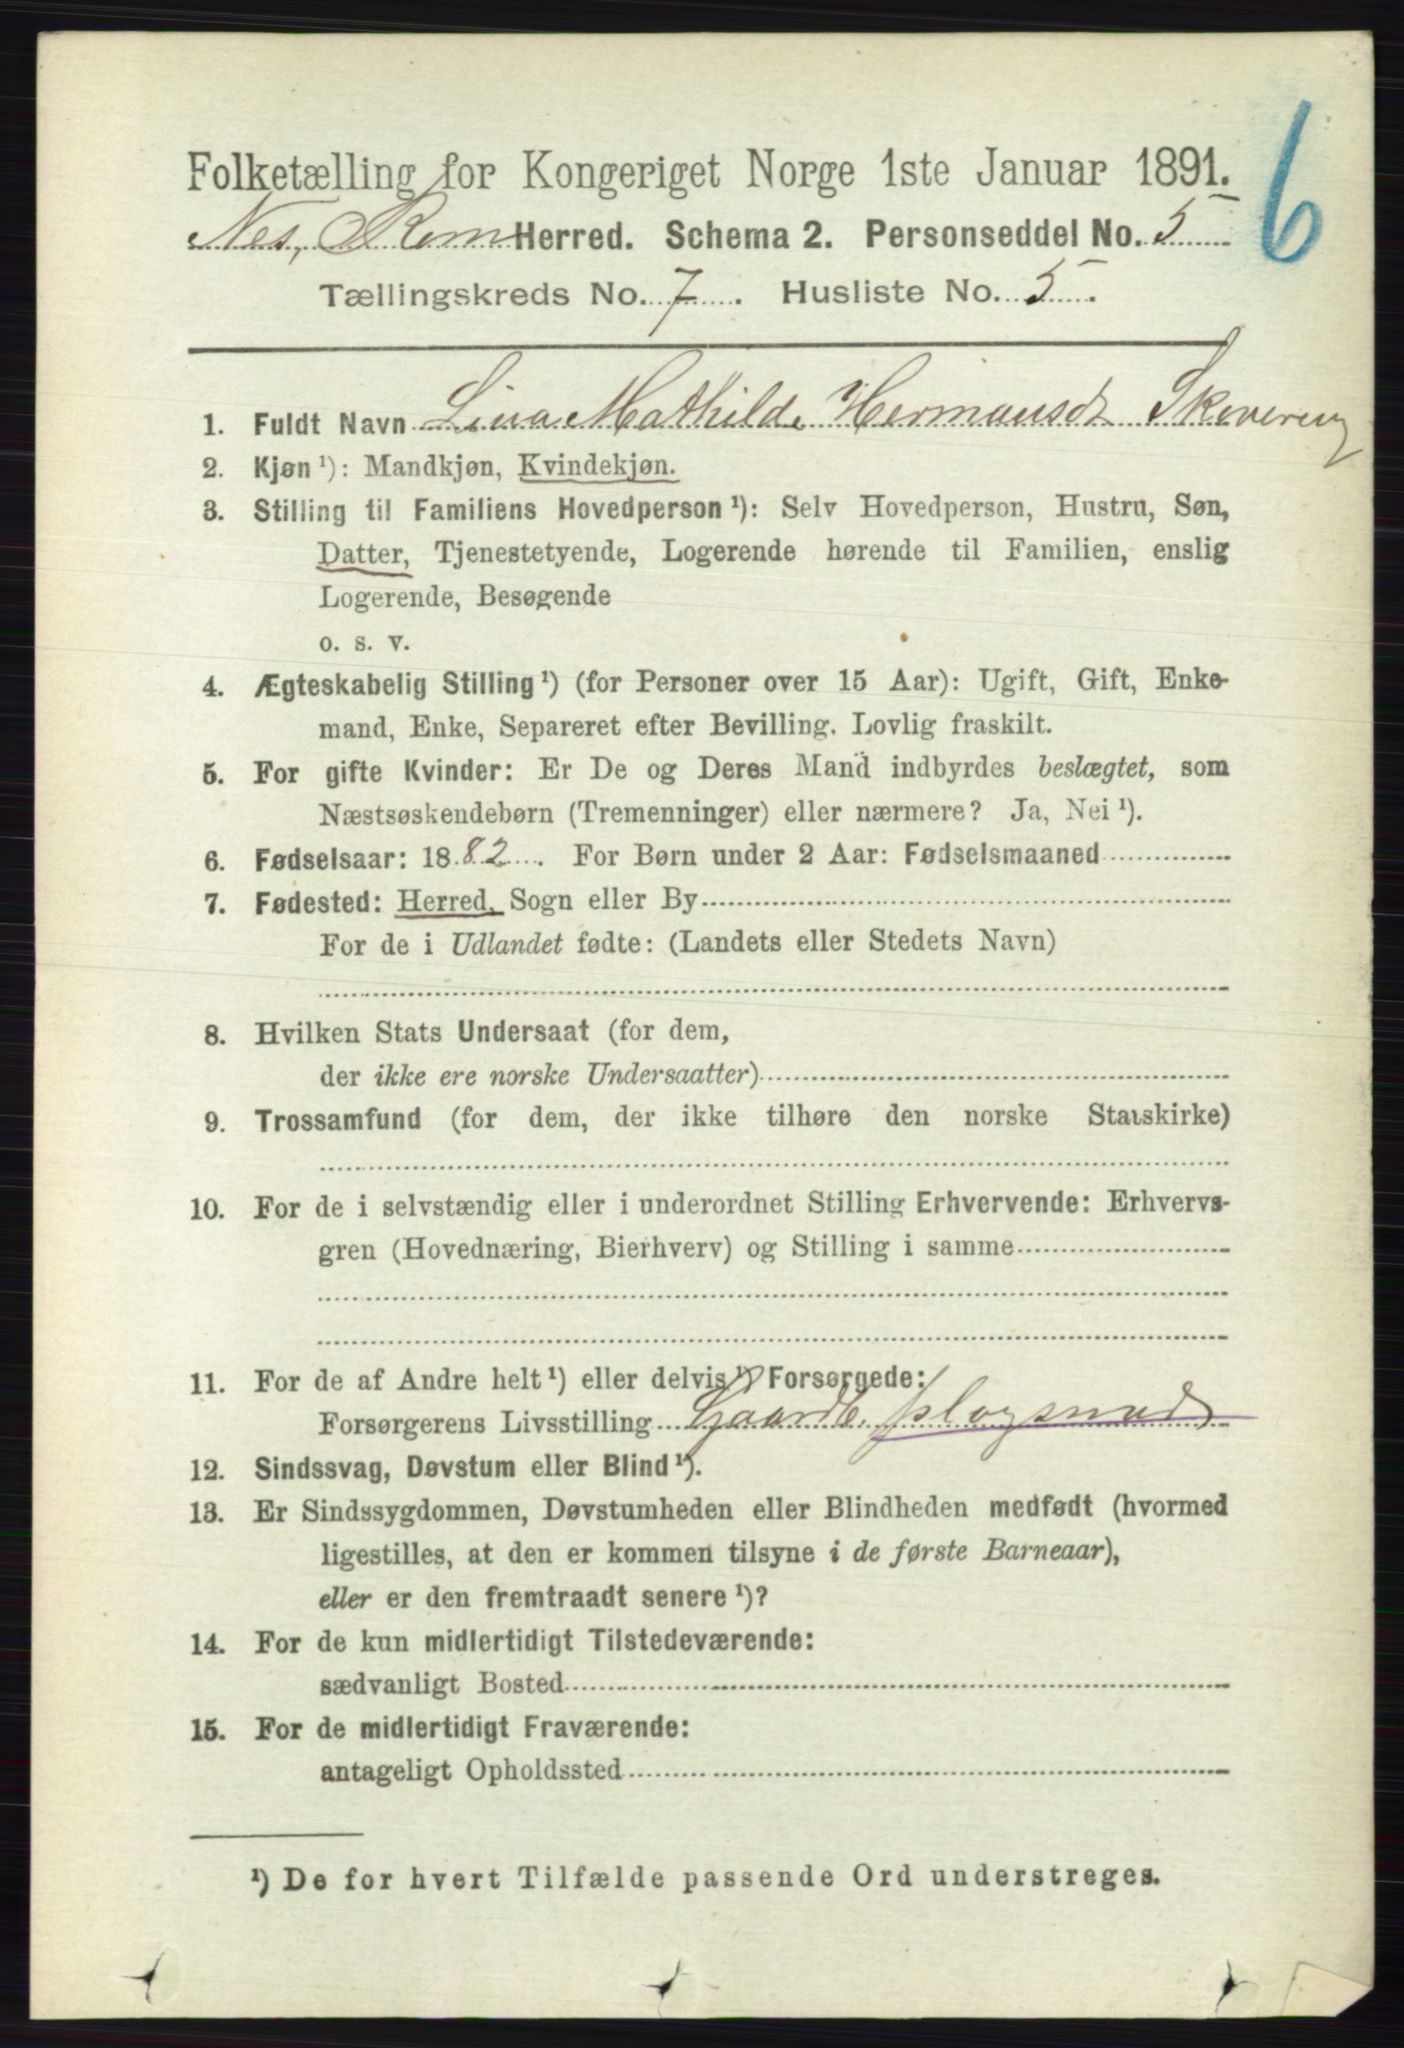 6
Folketælling for Kongeriget Norge 1ste Januar 1891.
Nes, Rom Herred. Schema 2. Personseddel No. 5
Tællingskreds No. 7. Husliste No. 5.
1. Fuldt Navn Lina Mathilde Hermansdt Skovereng
2. Kjøn ¹): Mandkjøn, Kvindekjøn.
3. Stilling til Familiens Hovedperson ¹): Selv Hovedperson, Hustru, Søn,
Datter, Tjenestetyende, Logerende hørende til Familien, enslig
Logerende, Besøgende
o. s. v.
4. Ægteskabelig Stilling ¹) (for Personer over 15 Aar): Ugift, Gift, Enke-
mand, Enke, Separeret efter Bevilling. Lovlig fraskilt.
5. For gifte Kvinder: Er De og Deres Mand indbyrdes beslægtet, som
Næstsøskendebørn (Tremenninger) eller nærmere? Ja, Nei ¹).
6. Fødselsaar: 1882. For Børn under 2 Aar: Fødselsmaaned
7. Fødested: Herred, Sogn eller By
For de i Udlandet fødte: (Landets eller Stedets Navn)
8. Hvilken Stats Undersaat (for dem,
der ikke ere norske Undersaatter)
9. Trossamfund (for dem, der ikke tilhøre den norske Statskirke)
10. For de i selvstændig eller i underordnet Stilling Erhvervende: Erhvervs-
gren (Hovednæring, Bierhverv) og Stilling i samme
11. For de af Andre helt ¹) eller delvis ¹) Forsørgede:
Forsørgerens Livsstilling Gaardb.
12. Sindssvag, Døvstum eller Blind ¹).
13. Er Sindssygdommen, Døvstumheden eller Blindheden medfødt (hvormed
ligestilles, at den er kommen tilsyne i de første Barneaar),
eller er den fremtraadt senere ¹)?
14. For de kun midlertidigt Tilstedeværende:
sædvanligt Bosted
15. For de midlertidigt Fraværende:
antageligt Opholdssted
¹) De for hvert Tilfælde passende Ord understreges.